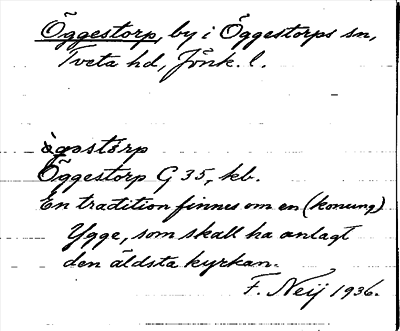 Öggestorp, by i Öggestorps sn,
Tveta hd, Jönk. l.
ögəstɔrp
Öggestorp G 35, kb.
En tradition finnes om en (konung)
Ygge, som skall ha anlagt
den äldsta kyrkan.
F. Neij 1936.